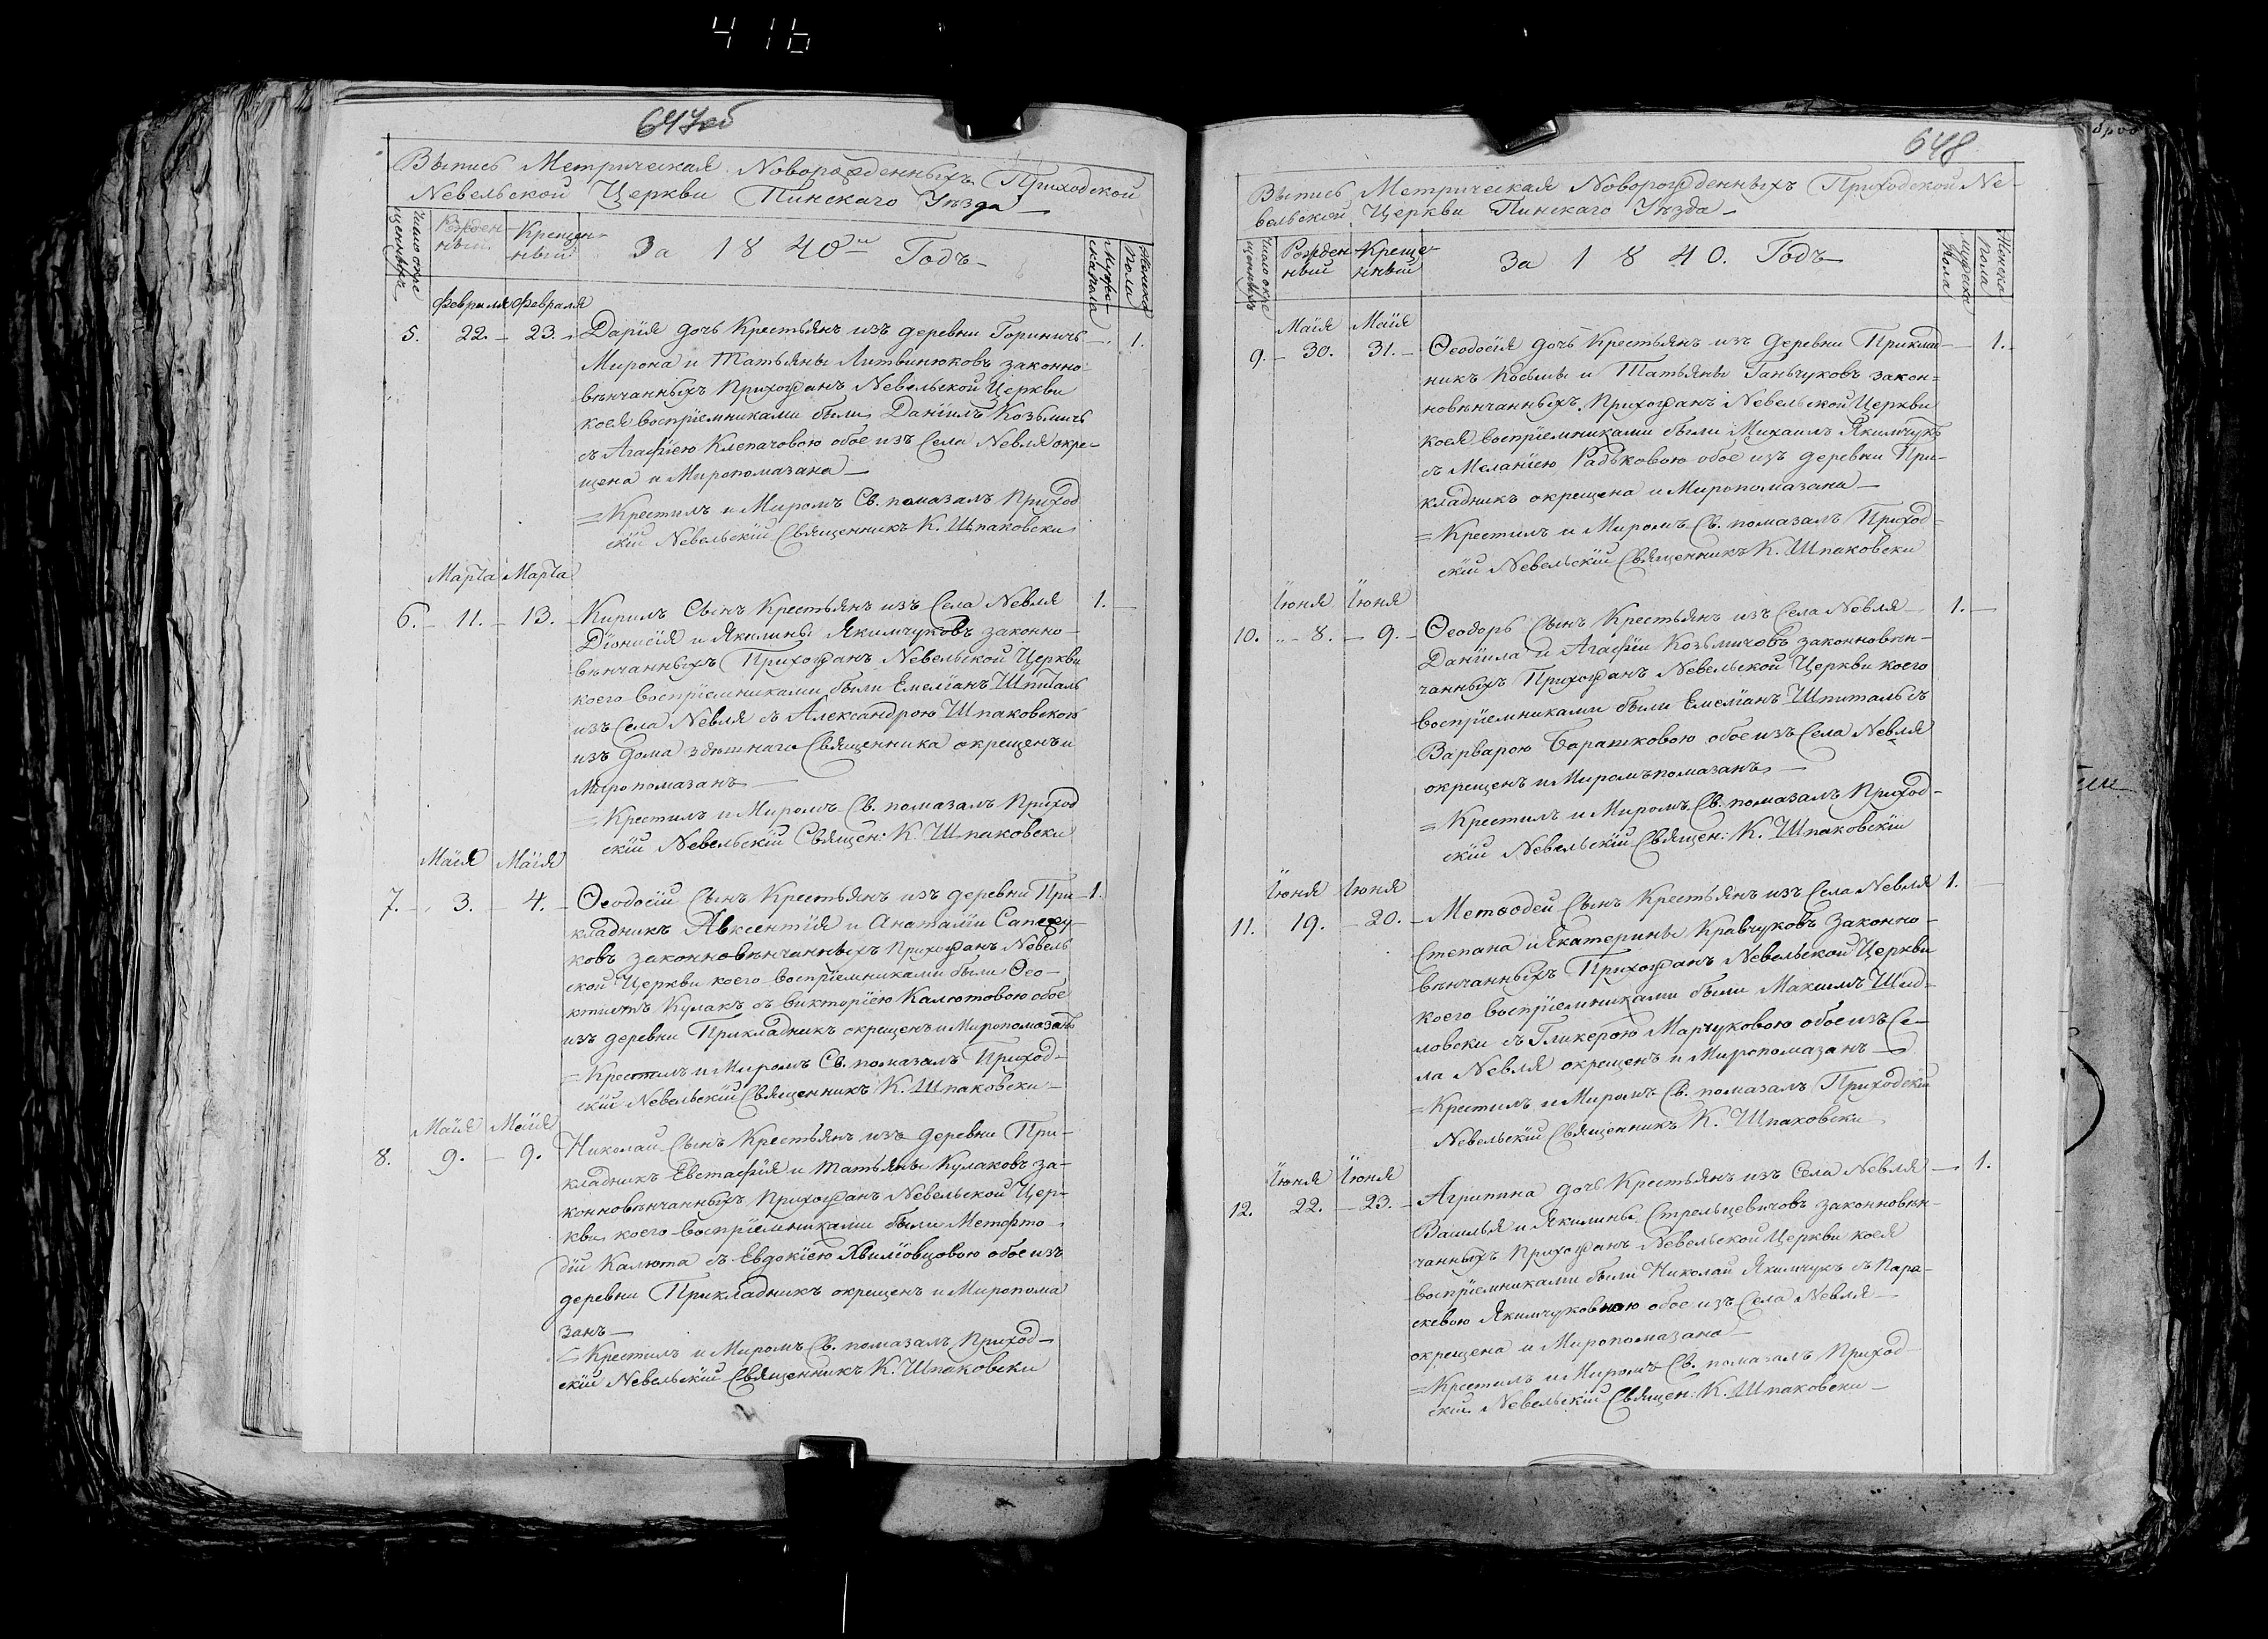 416
647об
Выпись Метрическая Новорожденныхъ Приходской
Невельской Церкви Пинскаго Уѣзда
число окре
щенныхъ
Рожден-
ный
Крещен-
ный
За 1840й Годъ
Муже-
ска пола
Женска
Пола
Февраля Февраля
5. 22. 23. Дарія дочь Крестьянъ изъ деревни Гориничъ 1.
Мирона и Татьяны Литвинюковъ законно-
вѣнчанныхъ Прихожанъ Невельской Церкви
коея воспріемниками были Даніилъ Козьмичъ
съ Агафіею Клепачовою обое изъ Села Невля окре-
щена и Миропомазана
Крестилъ и Миромъ Св. помазалъ Приход
скій Невельскій Священникъ К. Шпаковски
Марта Марта
6. 11. 13. Кирилъ Сынъ Крестьянъ изъ Села Невля 1.
Діонисія и Якилины Якимчуковъ законно-
вѣнчанныхъ Прихожанъ Невельской Церкви
коего воспріемниками были Емеліанъ Шпиталь
изъ Села Невля съ Александрою Шпаковскою
изъ дома здѣшнаго Священника окрещенъ и
Миропомазанъ
Крестилъ и Миромъ Св. помазалъ Приход
скій Невельскій Священ: К. Шпаковски
Маія Маія
7. 3. 4. Ѳеодосій Сынъ Крестьянъ изъ деревни При- 1.
кладникъ Авксентія и Анаталіи Сапежу-
ковъ законновѣнчанныхъ Прихожанъ Невель
ской Церкви коего воспріемниками были Ѳео-
ктистъ Кулакъ съ Викторіею Калютовою обое
изъ деревни Прикладникъ окрещенъ и Миропомазанъ
Крестилъ и Миромъ Св. помазалъ Приход-
скій Невельскій Священникъ К. Шпаковски
Маія Маія
8. 9. 9. Николай Сынъ Крестьянъ изъ деревни При-
кладникъ Евстафія и Татьяны Кулаковъ за-
конновѣнчанныхъ Прихожанъ Невельской Цер-
кви коего воспріемниками были Метфто-
дій Калюта съ Евдокіею Хвиліовцовою обое изъ
деревни Прикладникъ окрещенъ и Миропома
занъ
Крестилъ и Миромъ Св. помазалъ Приход-
скій Невельскій Священникъ К. Шпаковски
648
Выпись Метрическая Новорожденныхъ Приходской Не-
вельской Церкви Пинскаго Уѣзда
число окре
щенныхъ
Рожден
ный
Креще-
нный
За 1840. Годъ
Мужеска
Пола
Женска
Пола
Маія Маія
9. 30. 31. Ѳеодосія дочь Крестьянъ изъ деревни Приклад- 1.
никъ Косьмы и Татьяны Ганчуковъ закон-
новѣнчанныхъ Прихожанъ Невельской Церкви
коея воспріемниками были Михаилъ Якимчукъ
съ Меланіею Радьковою обое изъ деревни При-
кладникъ окрещена и Миропомазана
Крестилъ и Миромъ Св. помазалъ Приход-
скій Невельскій Священникъ К. Шпаковски
Іюня Іюня
10. 8. 9. Ѳеодоръ Сынъ Крестьянъ изъ Села Невля 1.
Даніила и Агафіи Козьмичовъ законновѣн-
чанныхъ Прихожанъ Невельской Церкви коего
воспріемниками были Емеліанъ Шпиталь съ
Варварою Барашковою обое изъ Села Невля
окрещенъ и Миромъ помазанъ
Крестилъ и Миромъ Св. помазалъ Приход-
скій Невельскій Священ: К. Шпаковскій
Іюня Іюня
11. 19. 20. Метѳодей Сынъ Крестьянъ изъ Села Невля 1.
Степана и Екатерины Кравчуковъ законно-
вѣнчанныхъ Прихожанъ Невельской Церкви
коего воспріемниками были Макимъ Шид-
ловски съ Гликерою Марчуковою обое изъ Се-
ла Невля окрещенъ и Миропомазанъ
Крестилъ и Миромъ Св. помазалъ Приходскій
Невельскій Священникъ К. Шпаковски
Іюня Іюня
12. 22. 23. Агрипина дочь Крестьянъ изъ Села Невля 1.
Василья и Якилины Стрельцевичовъ законновѣн-
чанныхъ Прихожанъ Невельской Церкви коея
воспріемниками были Николай Якимчукъ съ Пара-
скевою Якимчуковною обое изъ Села Невля
окрещена и Миропомазана
Крестилъ и Миромъ Св. помазалъ Приход-
скій Невельскій Священ: К. Шпаковски